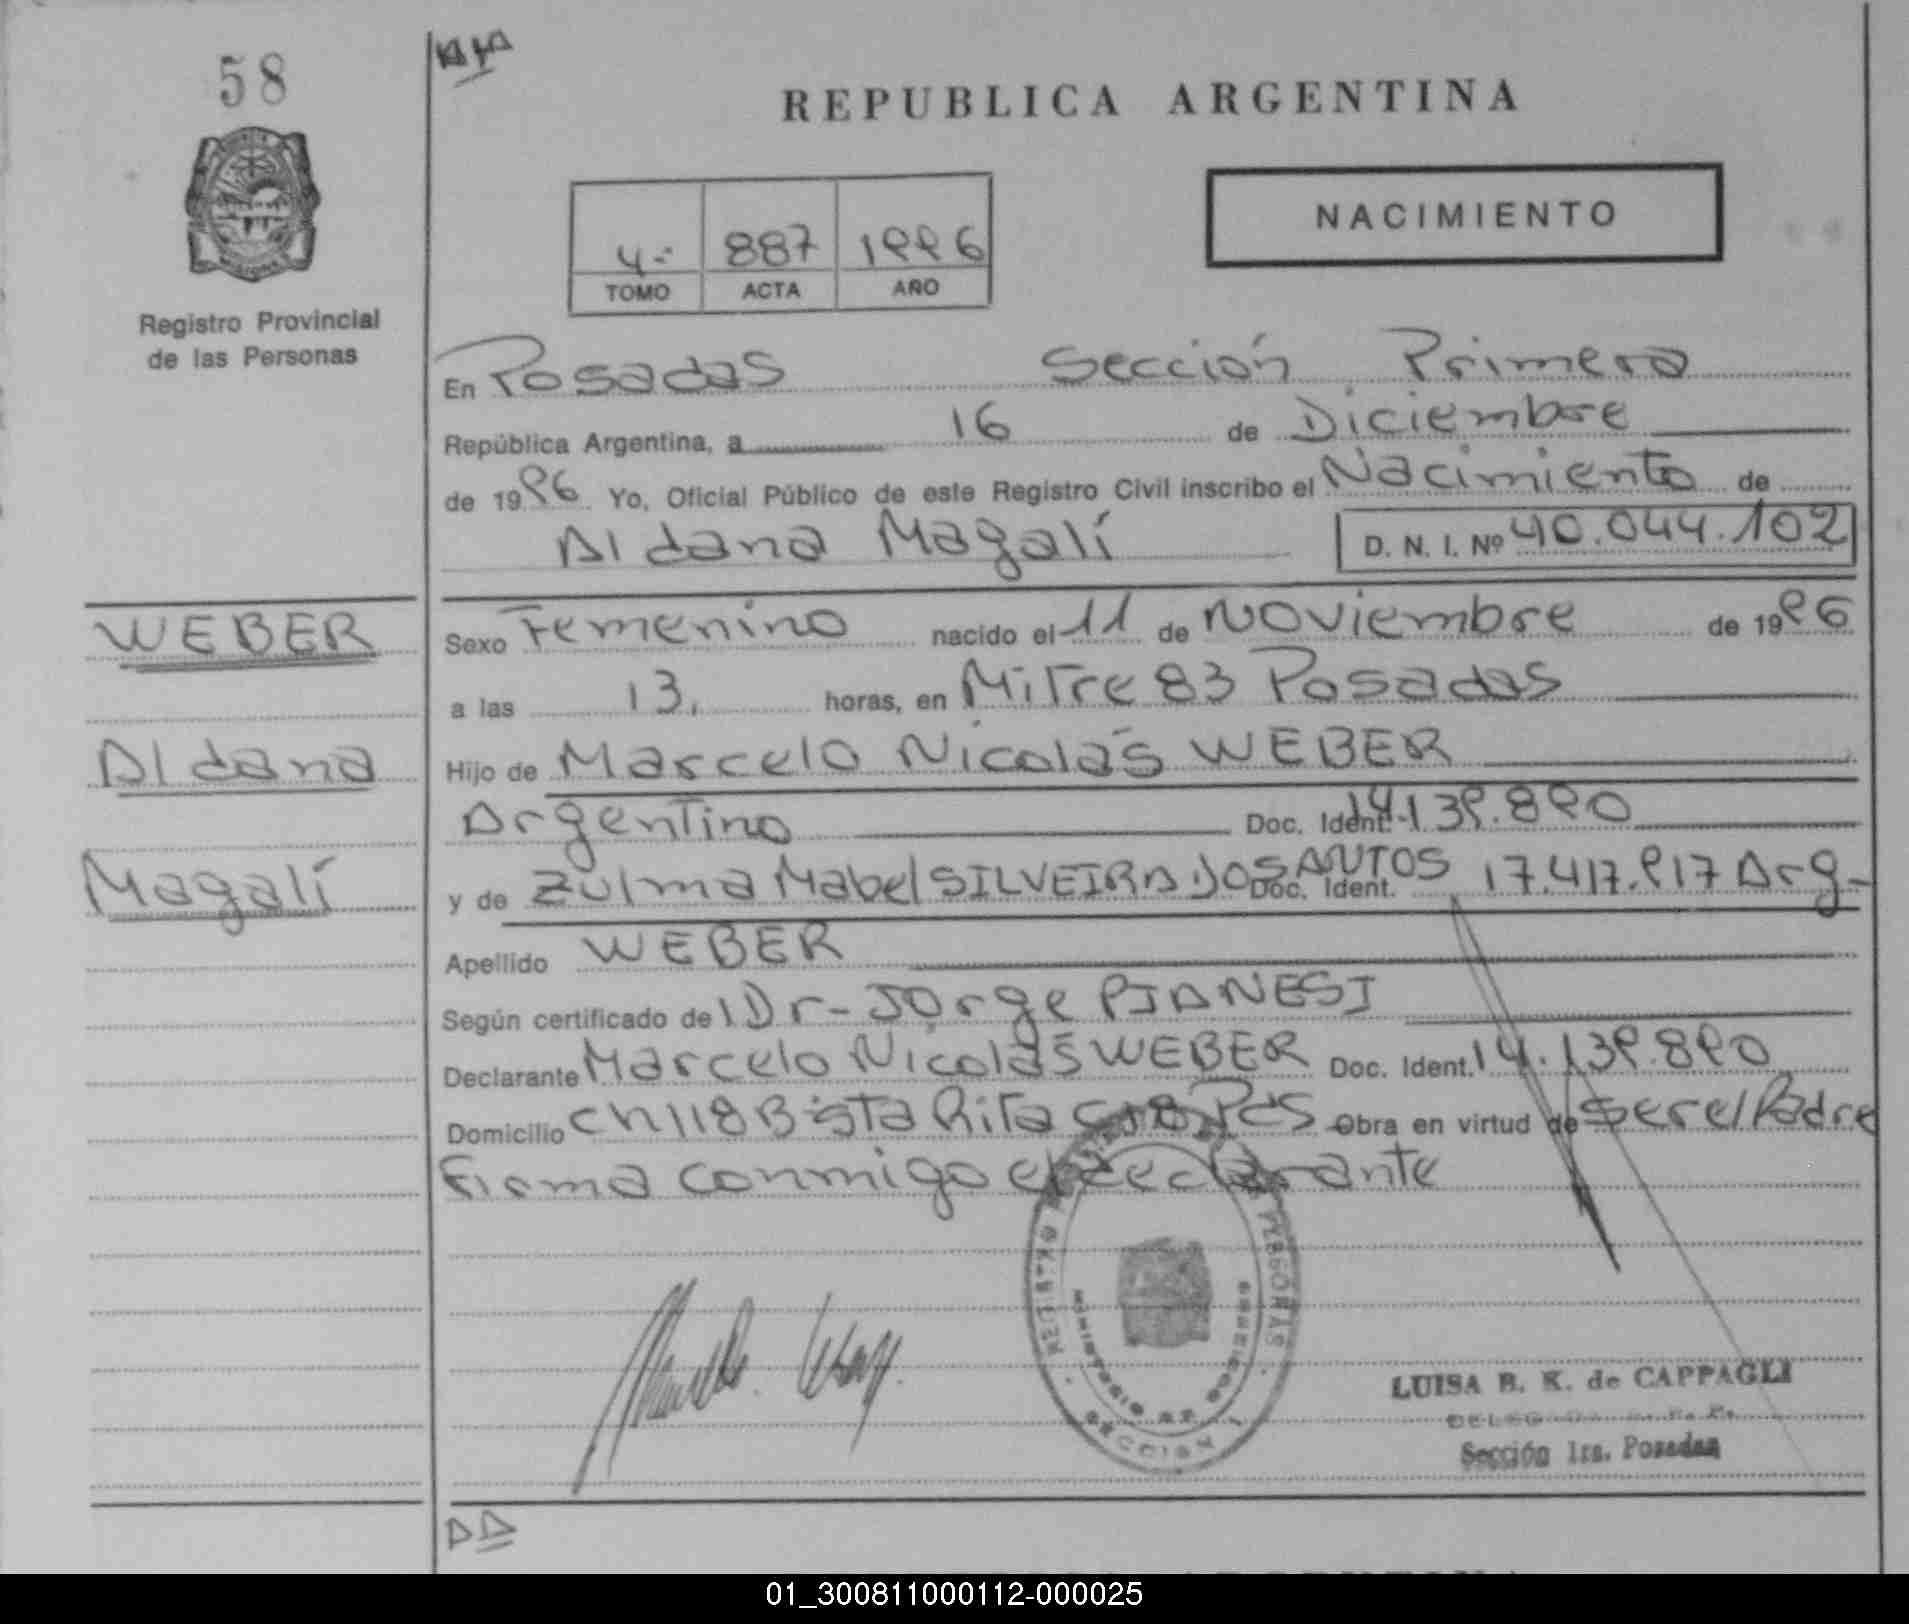 58
REPUBLICA ARGENTINA
NACIMIENTO
4- 887 1996
TOMO ACTA AÑO
Registro Provincial
de las Personas
En Posadas Sección Primera
República Argentina, a 16 de Diciembre
de 1996 Yo, Oficial Público de este Registro Civil inscribo el Nacimiento de
Aldana Magalí D. N. I. Nº 40.044.102
WEBER
Aldana
Magalí
Sexo Femenino nacido el 11 de Noviembre de 1996
a las 13, horas, en Mitre 83 Posadas
Hijo de Marcelo Nicolás WEBER
Argentino Doc. Ident. 14.139.890
y de Zulma Mabel SILVEIRA DOSANTOS Doc. Ident. 17.417.917 Arg-
Apellido WEBER
Según certificado de Dr- Jorge PIANESI
Declarante Marcelo Nicolás WEBER Doc. Ident. 14.139.890
Domicilio Ch 118 Bº Sta Rita Pds Obra en virtud de Ser el Padre
Firma conmigo el declarante
PERSONAS
MINISTERIO DE GOBIERNO
SECCION 1
LUISA B. K. de CAPPAGLI
Sección 1ra. Posadas
01_300811000112-000025